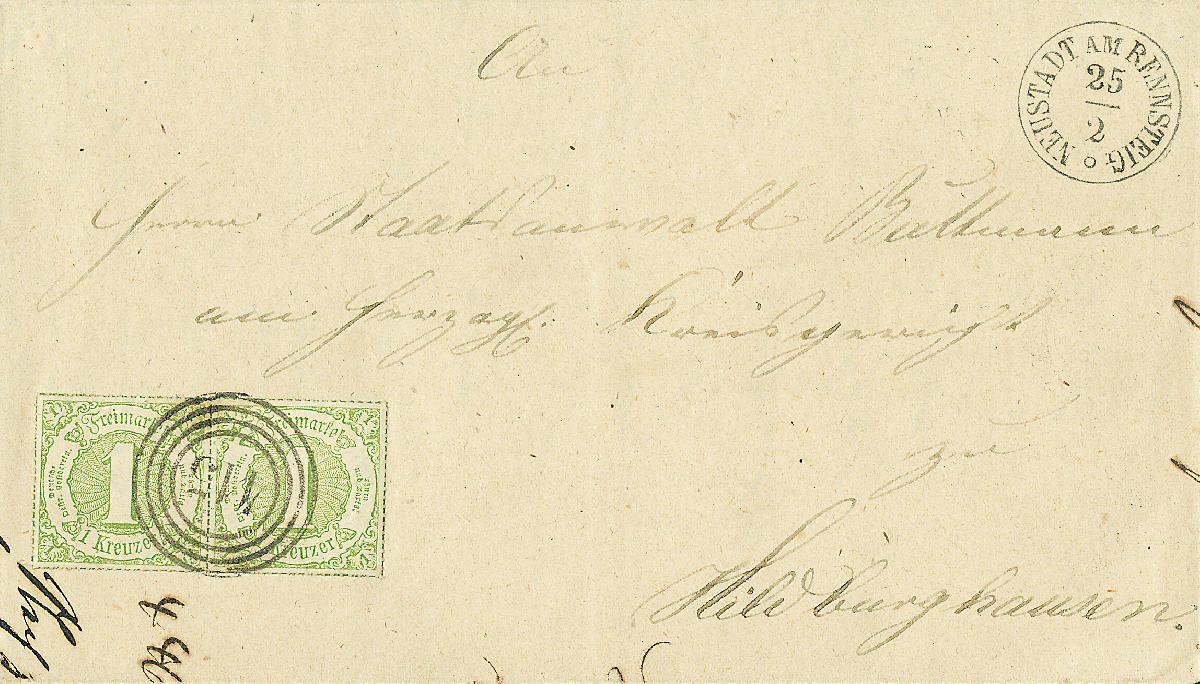 An
NEUSTADT AM RENNSTEIG
25
2
Herrn Staatsanwalt Baltmann
am Herzogl. Kreisgericht
zu
Hildburghausen.
Freimarke
Freimarke
1
1 Kreuzer
Kreuzer